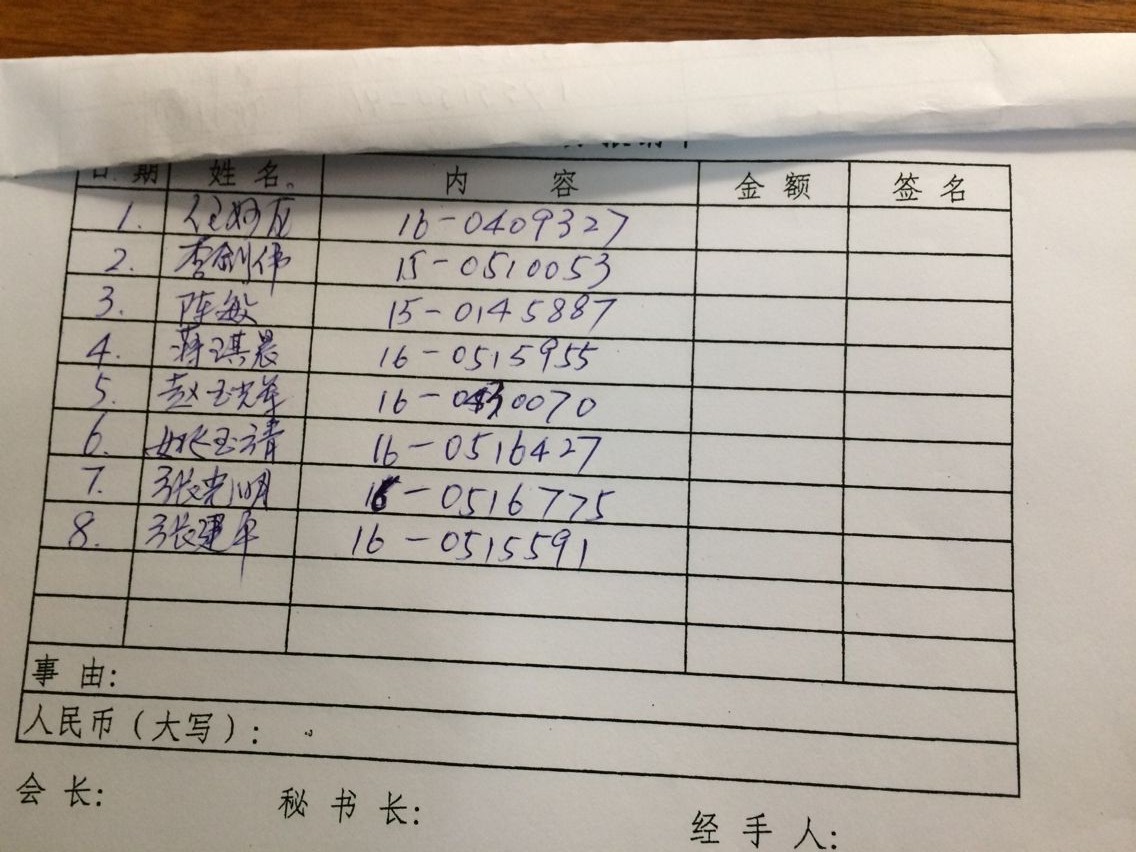 日 期 姓 名 内 容 金 额 签 名
1. 16-0409327
2. 李剑伟 15-0510053
3. 陈敏 15-0145887
4. 蒋琪晨 16-0515955
5. 16-0070
6. 姚玉清 16-0516427
7. 张光明 -0516775
8. 张建平 16-0515591
事 由:
人民币(大写):
会 长: 秘 书 长: 经 手 人: